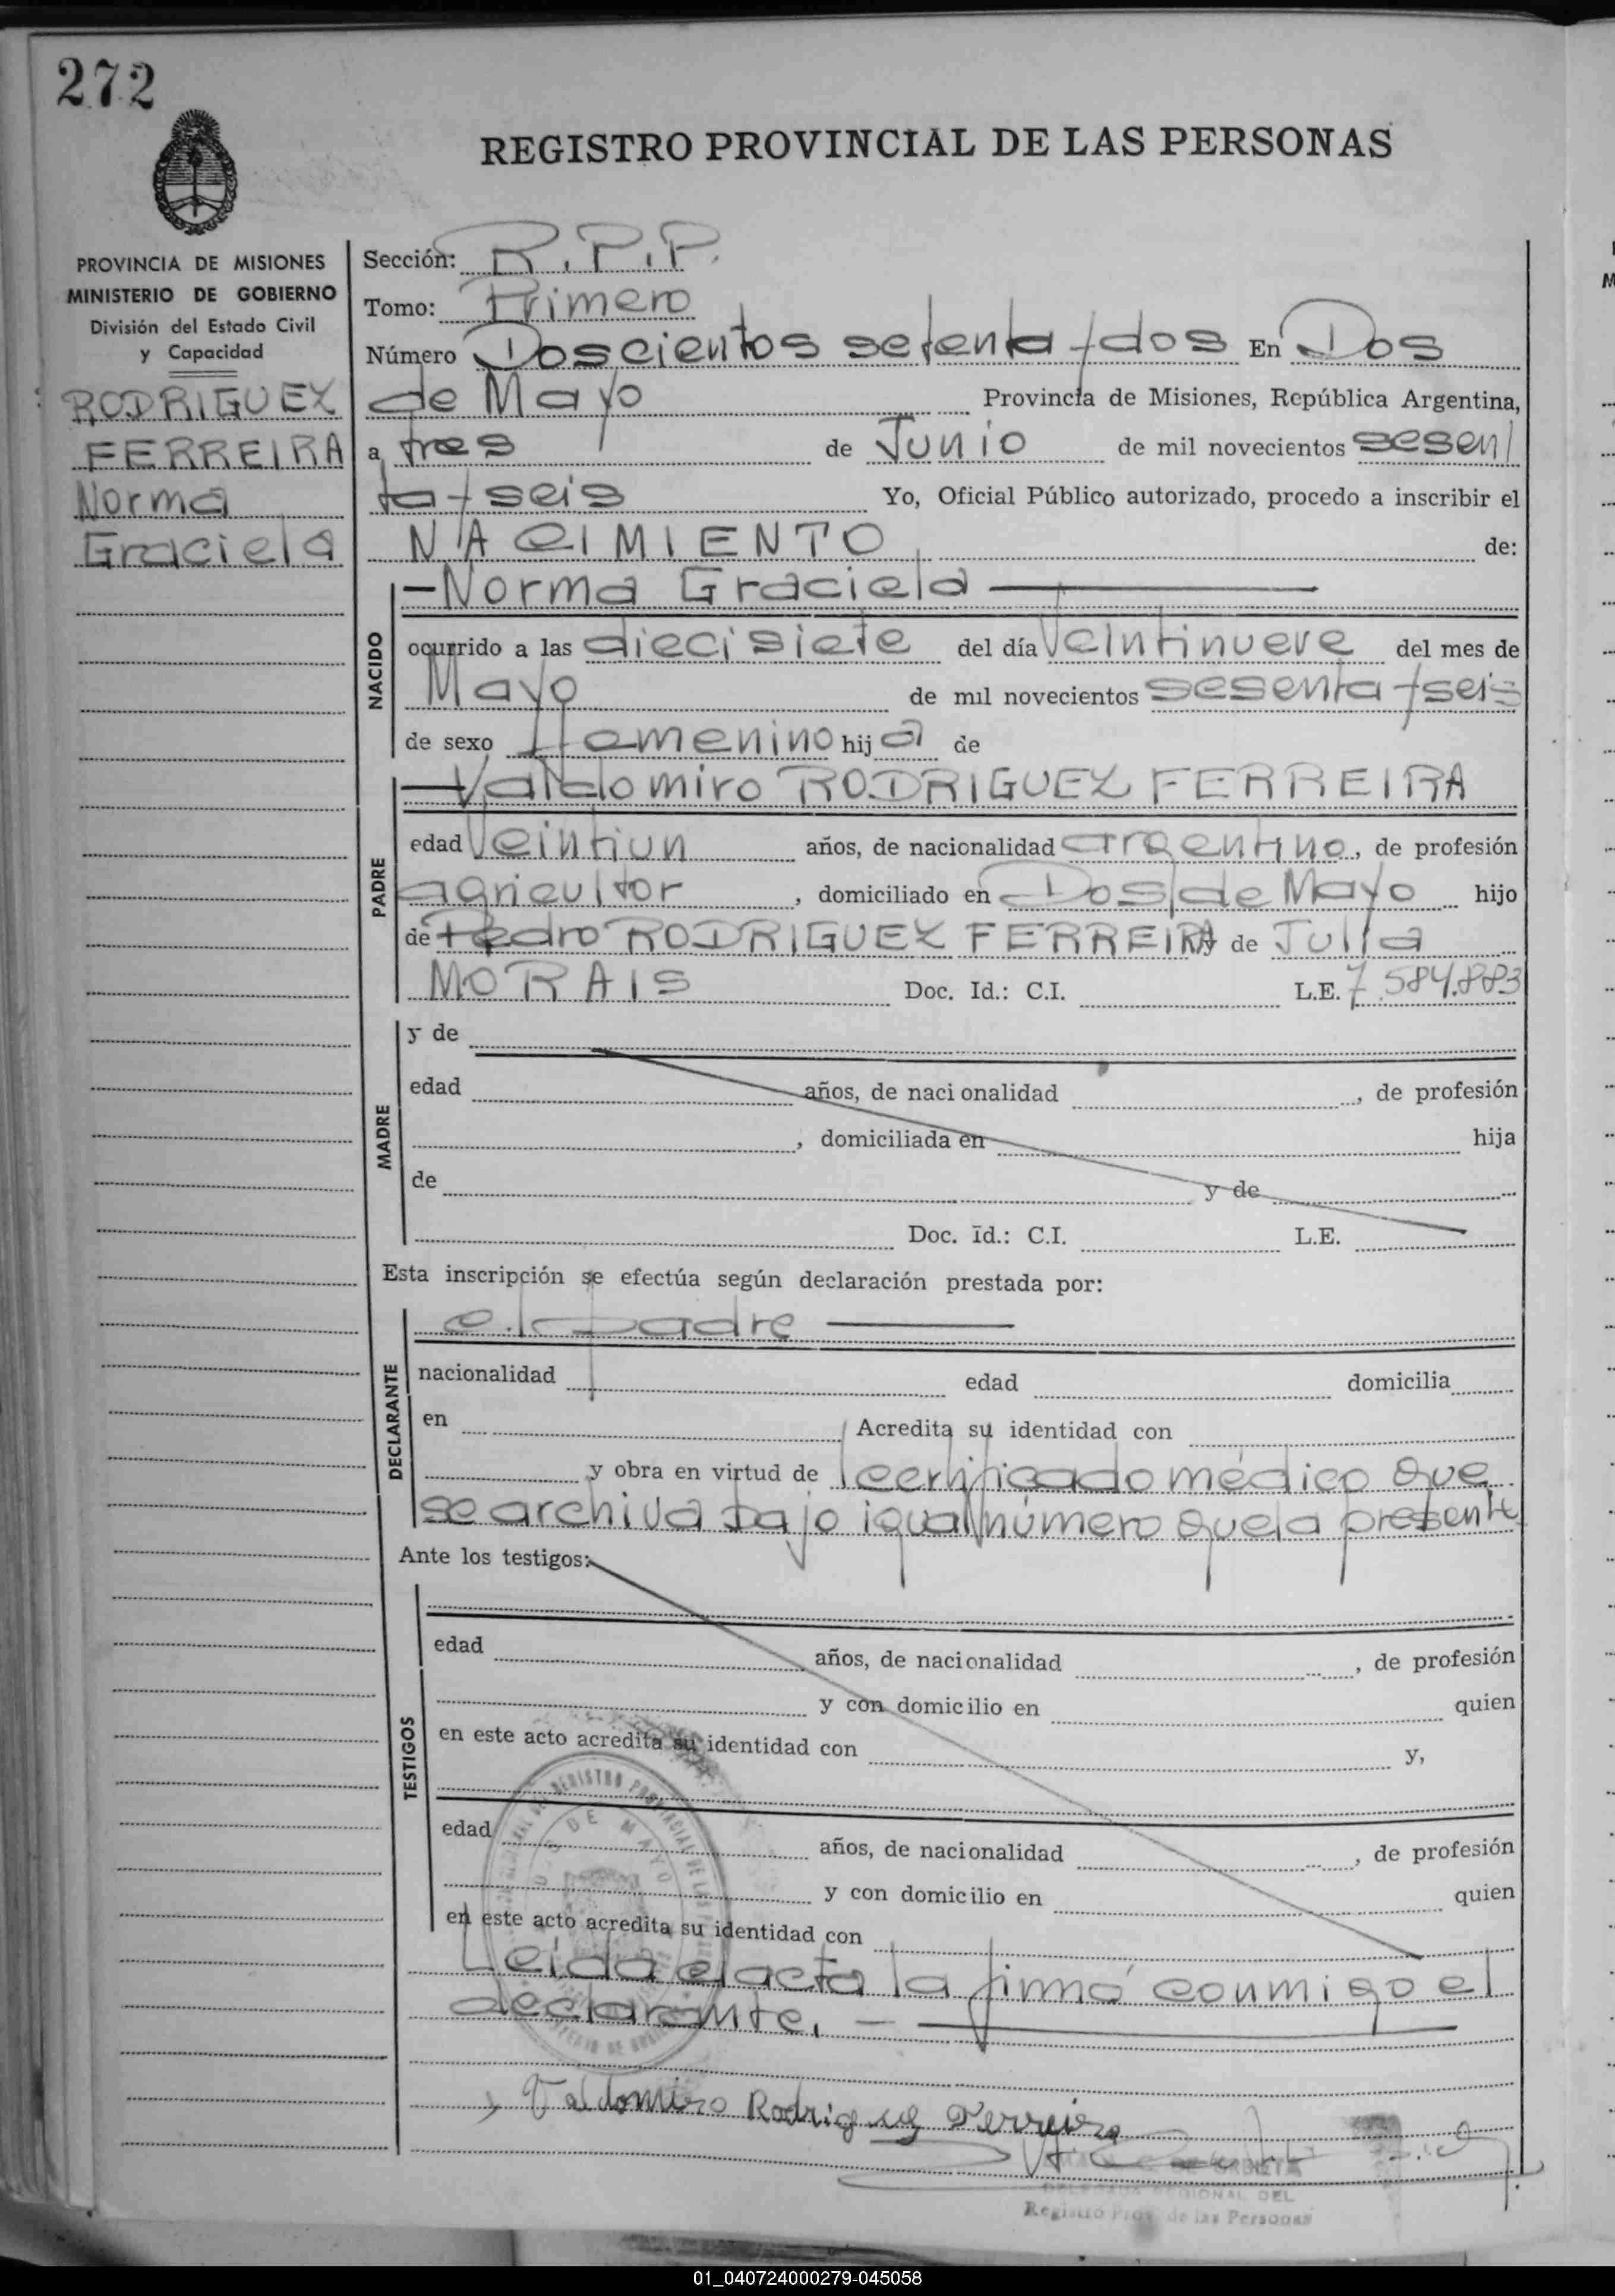 272
REGISTRO PROVINCIAL DE LAS PERSONAS
PROVINCIA DE MISIONES
MINISTERIO DE GOBIERNO
División del Estado Civil
y Capacidad
RODRIGUEZ
FERREIRA
Norma
Graciela
Sección: R.P.P.
Tomo: Primero
Número Doscientos setenta y dos En Dos
de Mayo Provincia de Misiones, República Argentina,
a tres de Junio de mil novecientos sesen
ta y seis Yo, Oficial Público autorizado, procedo a inscribir el
NACIMIENTO de:
NACIDO
— Norma Graciela —
ocurrido a las diecisiete del día veintinueve del mes de
Mayo de mil novecientos sesenta y seis
de sexo femenino hija de
PADRE
— Valdomiro RODRIGUEZ FERREIRA
edad veintiun años, de nacionalidad argentino, de profesión
agricultor, domiciliado en Dos de Mayo hijo
de Pedro RODRIGUEZ FERREIRA y de Julia
MORAIS Doc. Id.: C.I. L.E. 7.584.883
MADRE
y de
edad años, de nacionalidad , de profesión
, domiciliada en hija
de y de
Doc. Id.: C.I. L.E.
Esta inscripción se efectúa según declaración prestada por:
DECLARANTE
el padre —
nacionalidad edad domicilia
en Acredita su identidad con
y obra en virtud de certificado médico que
se archiva bajo igual número que la presente
Ante los testigos:
TESTIGOS
edad años, de nacionalidad , de profesión
y con domicilio en quien
en este acto acredita su identidad con y,
edad años, de nacionalidad , de profesión
y con domicilio en quien
en este acto acredita su identidad con
REGISTRO PROVINCIAL DE LAS
DOS DE MAYO
Leída el acta la firmó conmigo el
declarante. —
Valdomiro Rodriguez Ferreira
REGIONAL DEL
Registro Prov. de las Personas
01_040724000279-045058